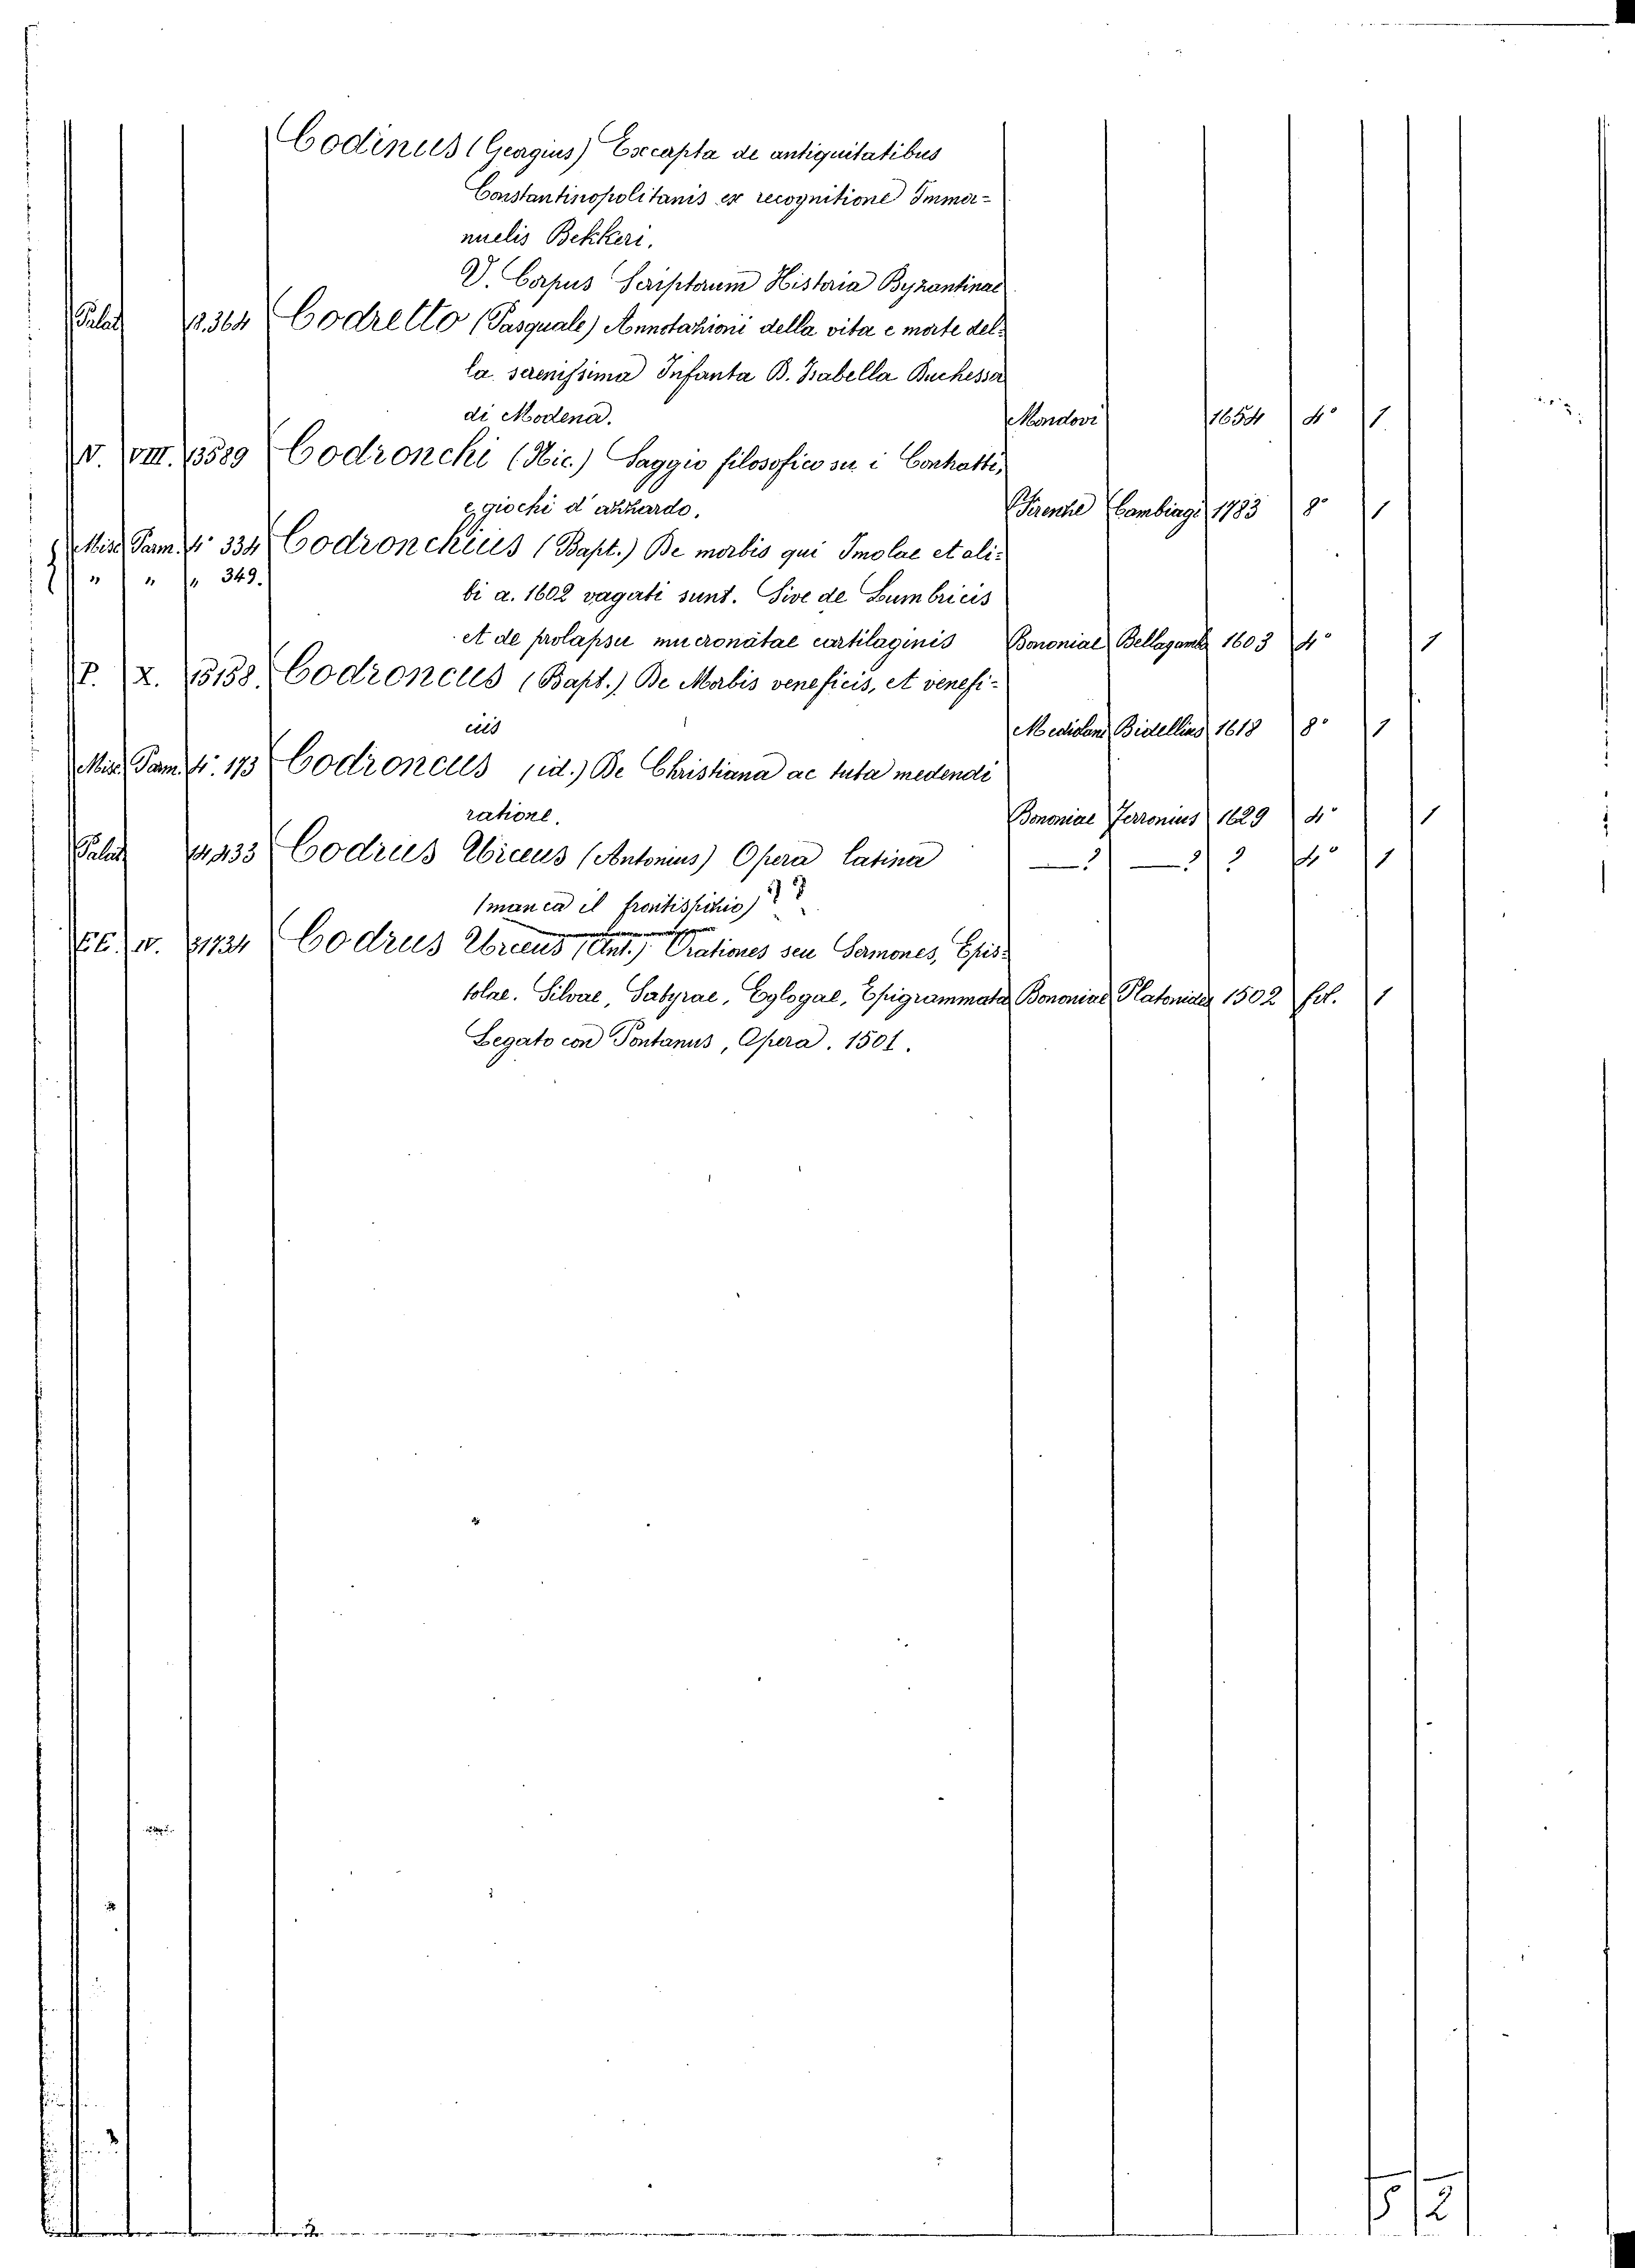 Codinus (Georgius) Excerpta de antiquitatibus
Constantinopolitanis ex recognitione Imma-
nuelis Bekkeri.
V. Corpus Scriptorum Historia Byzantinae
Palat 12.364 Codretto (Pasquale) Annotazioni della vita e morte del-
la serenissima Infanta D. Isabella Duchessa
di Modena. Mondovi 1654 4° 1
V. VIII. 13589 Codronchi (Nic.) Saggio filosofico su i Contratti,
e giochi d'azzardo. Firenze Cambiagi 1783 8° 1
Misc. Parm. 4° 334 Codronchius (Bapt.) De morbis qui Imolae et ali-
" " " 349. bi a. 1602 vagati sunt. Sive de Lumbricis
et de prolapsu mucronatae cartilaginis Bononiae Bellagamb 1603 4° 1
P. X. 15158. Codroncus (Bapt.) De Morbis veneficis, et venefi-
ciis Mediolani Bidellius 1618 8° 1
Misc. Parm. 4°. 173 Codroncus (id.) De Christiana ac tuta medendi
ratione. Bononiae Ferronius 1629 4° 1
Palat 14,433 Codrus Urceus (Antonius) Opera latina —? —? ? 4° 1
(manca il frontispizio) ? ?
EE. IV. 31734 Codrus Urceus (Ant.) Orationes seu Sermones, Epis-
tolae. Silvae, Satyrae, Eglogae, Epigrammata Bononiae Platonides 1502 fol. 1
Legato con Pontanus, Opera. 1501.
5 2